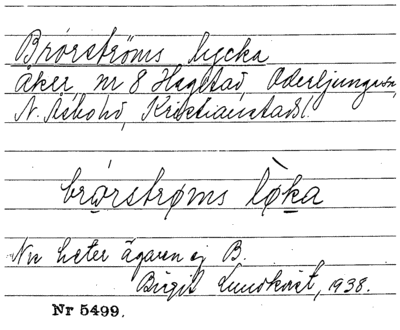 Brorströms lycka
Åker, nr 8 Hagstad, Oderljunga sn,
N. Åsbohd, Kristianstadsl.
brórstrøms lø̀ka
Nu heter ägaren ej B.
Birgit Lundkvist, 1938.
Nr 5499.